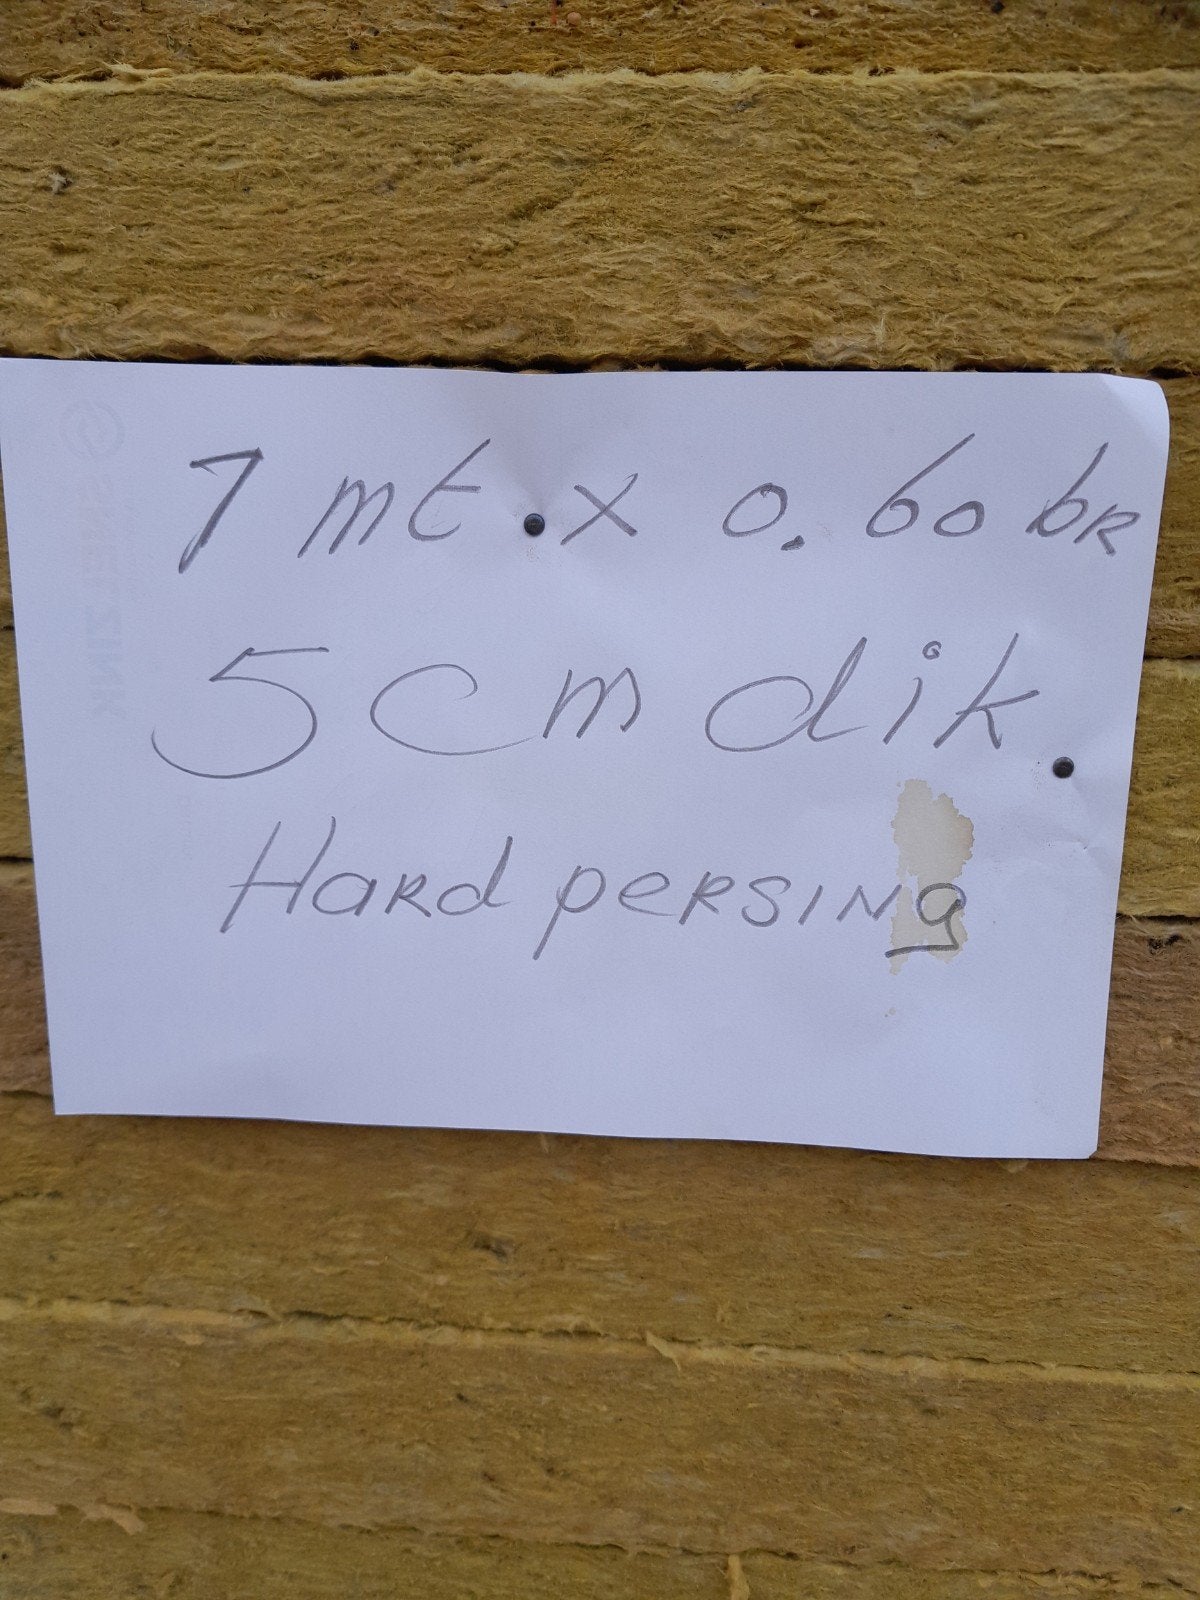 1 mt. x 0.60 bR
5cm dik.
Hard persing